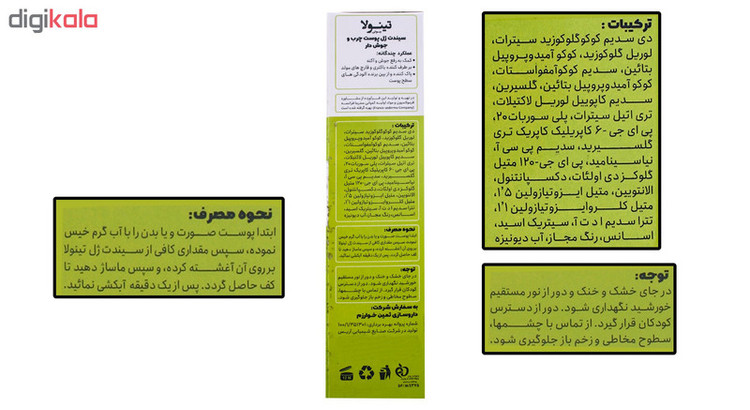 digikala
تینولا
سیندت ژل پوست چرب و
جوش دار
عملکرد چندگانه:
کمک به رفع جوش و آکنه
بر طرف کننده باکتری و قارچ های مولد
پاک کننده و از بین برنده آلودگی های
سطح پوست
ترکیبات:
دی سدیم کوکوگلوکوزید سیترات،
لوریل گلوکزید، کوکو آمیدوپروپیل
بتائین، سدیم کوکوآمفواستات،
کوکو آمیدوپروپیل بتائین، گلیسرین،
سدیم کاپوییل لوریل لاکتیلات،
تری اتیل سیترات، پلی سوربات۲۰،
پی ای جی -۶ کاپریلیک کاپریک تری
گلیسیرید، سدیم پی سی آ،
نیاسینامید، پی ای جی-۱۲۰ متیل
گلوکز دی اولئات، دکسپانتنول،
آلانتویین، متیل ایزوتیازولین ۱٫۵،
متیل کلروایزوتیازولین ۱٫۱،
تترا سدیم ا د ت آ، سیتریک اسید،
اسانس، رنگ مجاز، آب دیونیزه
نحوه مصرف:
ابتدا پوست صورت و یا بدن را با آب گرم خیس
نموده، سپس مقداری کافی از سیندت ژل تینولا
بر روی آن آغشته کرده، و سپس ماساژ دهید تا
کف حاصل گردد. پس از یک دقیقه آبکشی نمائید.
توجه:
در جای خشک و خنک و دور از نور مستقیم
خورشید نگهداری شود. دور از دسترس
کودکان قرار گیرد. از تماس با چشمها،
سطوح مخاطی و زخم باز جلوگیری شود.
به سفارش شرکت:
داروسازی ثمین خوارزم